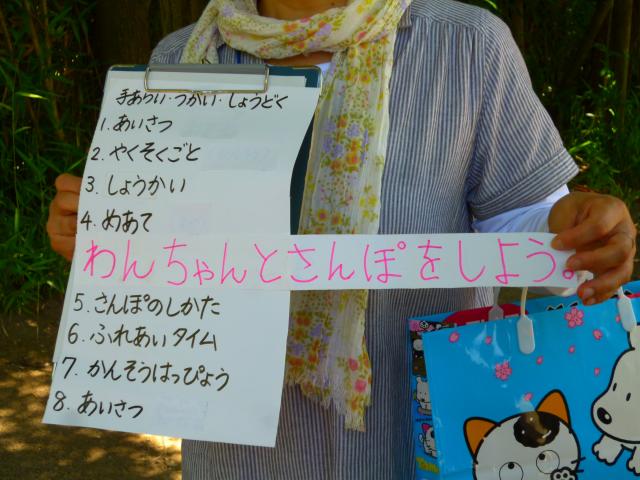 手あらい・うがい・しょうどく
1. あいさつ
2. やくそくごと
3. しょうかい
4. めあて
わんちゃんとさんぽをしよう。
5. さんぽのしかた
6. ふれあいタイム
7. かんそうはっぴょう
8. あいさつ